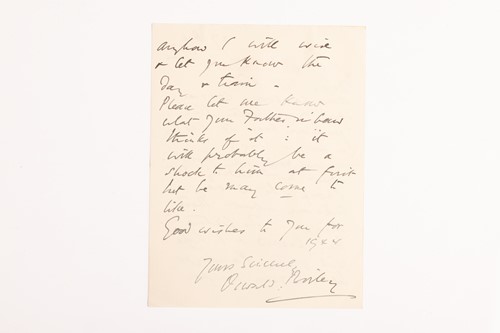 anyhow I will wire
& let you know the
Day & train -
Please let me know
what your Father in law
thinks of it : it
will probably be a
shock to him at first
but he may come to
like.
Good wishes to you for
Yours Sincerely
Oswald